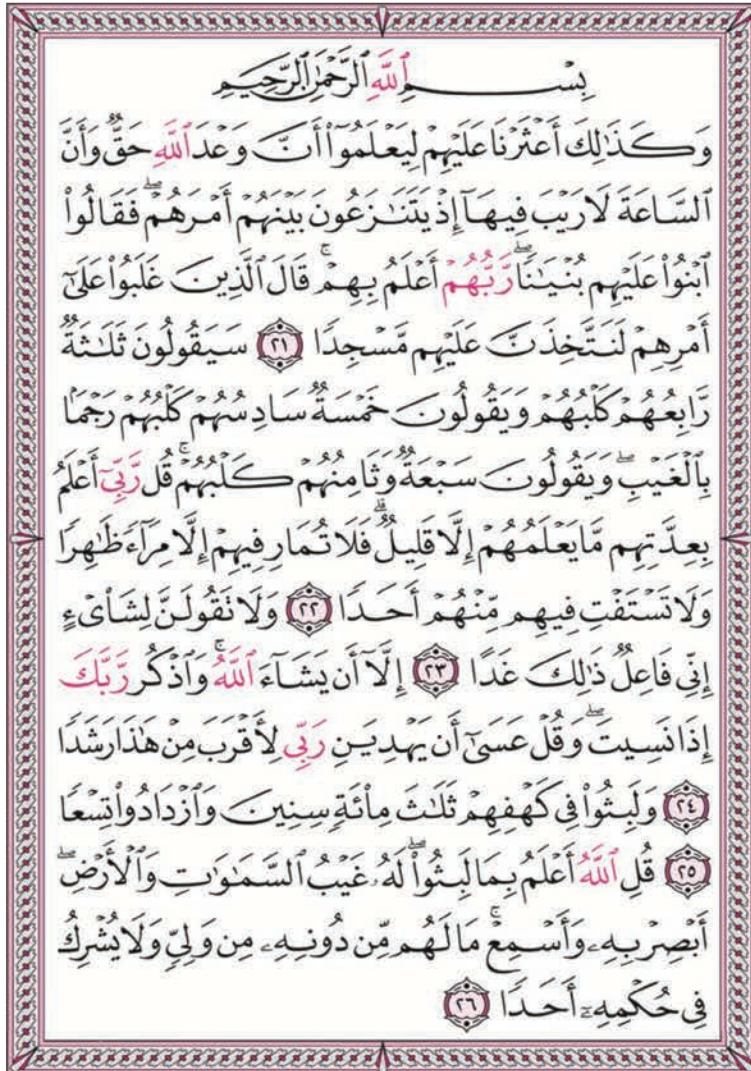 بِسْمِ ٱللَّهِ ٱلرَّحْمَٰنِ ٱلرَّحِيمِ
وَكَذَٰلِكَ أَعْثَرْنَا عَلَيْهِمْ لِيَعْلَمُوٓا۟ أَنَّ وَعْدَ ٱللَّهِ حَقٌّ وَأَنَّ
ٱلسَّاعَةَ لَا رَيْبَ فِيهَآ إِذْ يَتَنَٰزَعُونَ بَيْنَهُمْ أَمْرَهُمْ ۖ فَقَالُوا۟
ٱبْنُوا۟ عَلَيْهِم بُنْيَٰنًا ۖ رَّبُّهُمْ أَعْلَمُ بِهِمْ ۚ قَالَ ٱلَّذِينَ غَلَبُوا۟ عَلَىٰٓ
أَمْرِهِمْ لَنَتَّخِذَنَّ عَلَيْهِم مَّسْجِدًا ٢١ سَيَقُولُونَ ثَلَٰثَةٌ
رَّابِعُهُمْ كَلْبُهُمْ وَيَقُولُونَ خَمْسَةٌ سَادِسُهُمْ كَلْبُهُمْ رَجْمًۢا
بِٱلْغَيْبِ ۖ وَيَقُولُونَ سَبْعَةٌ وَثَامِنُهُمْ كَلْبُهُمْ ۚ قُل رَّبِّىٓ أَعْلَمُ
بِعِدَّتِهِم مَّا يَعْلَمُهُمْ إِلَّا قَلِيلٌ ۗ فَلَا تُمَارِ فِيهِمْ إِلَّا مِرَآءً ظَٰهِرًا
وَلَا تَسْتَفْتِ فِيهِم مِّنْهُمْ أَحَدًا ٢٢ وَلَا تَقُولَنَّ لِشَا۟ىْءٍ
إِنِّى فَاعِلٌ ذَٰلِكَ غَدًا ٢٣ إِلَّآ أَن يَشَآءَ ٱللَّهُ ۚ وَٱذْكُر رَّبَّكَ
إِذَا نَسِيتَ ۖ وَقُلْ عَسَىٰٓ أَن يَهْدِيَنِ رَبِّى لِأَقْرَبَ مِنْ هَٰذَا رَشَدًا
٢٤ وَلَبِثُوا۟ فِى كَهْفِهِمْ ثَلَٰثَ مِا۟ئَةٍ سِنِينَ وَٱزْدَادُوا۟ تِسْعًا
٢٥ قُلِ ٱللَّهُ أَعْلَمُ بِمَا لَبِثُوا۟ ۖ لَهُۥ غَيْبُ ٱلسَّمَٰوَٰتِ وَٱلْأَرْضِ ۖ
أَبْصِرْ بِهِۦ وَأَسْمِعْ ۚ مَا لَهُم مِّن دُونِهِۦ مِن وَلِىٍّ وَلَا يُشْرِكُ
فِى حُكْمِهِۦٓ أَحَدًا ٢٦